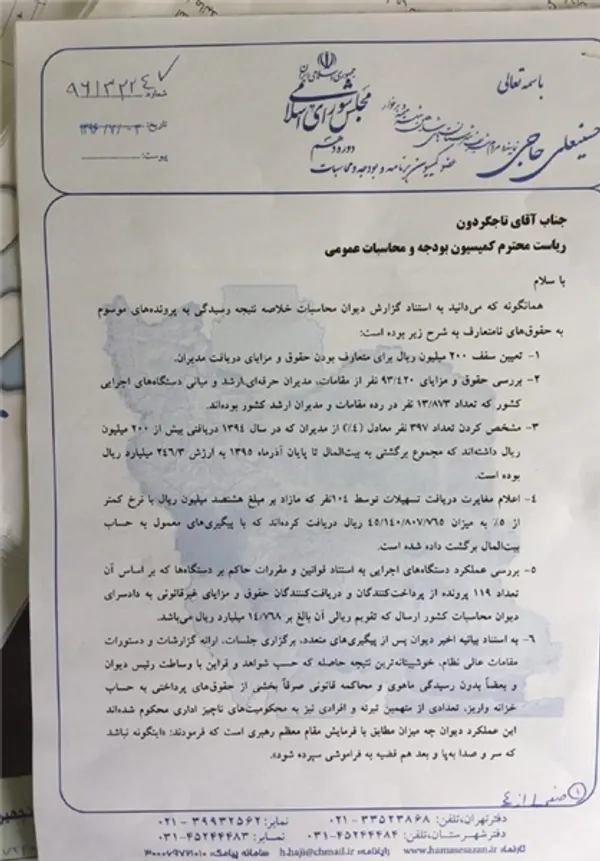 باسمه تعالی
جمهوری اسلامی ایران
مجلس شورای اسلامی
دوره دهم
عضو کمیسیون برنامه و بودجه و محاسبات
حسینعلی حاجی
شماره: ۹۶/۳۲۲۴
تاریخ: ۱۳۹۶/۷/۰۳
پیوست:
جناب آقای تاجگردون
ریاست محترم کمیسیون بودجه و محاسبات عمومی
با سلام
همانگونه که می‌دانید به استناد گزارش دیوان محاسبات خلاصه نتیجه رسیدگی به پرونده‌های موسوم
به حقوق‌های نامتعارف به شرح زیر بوده است:
۱- تعیین سقف ۲۰۰ میلیون ریال برای متعارف بودن حقوق و مزایای دریافت مدیران.
۲- بررسی حقوق و مزایای ۹۳/۴۲۰ نفر از مقامات، مدیران حرفه‌ای،ارشد و میانی دستگاه‌های اجرایی
کشور که تعداد ۱۳/۸۷۳ نفر در رده مقامات و مدیران ارشد کشور بوده‌اند.
۳- مشخص کردن تعداد ۳۹۷ نفر معادل (۴٪) از مدیران که در سال ۱۳۹۴ دریافتی بیش از ۲۰۰ میلیون
ریال داشته‌اند که مجموع برگشتی به بیت‌المال تا پایان آذرماه ۱۳۹۵ به ارزش ۲۴۶/۳ میلیارد ریال
بوده است.
۴- اعلام مغایرت دریافت تسهیلات توسط ۱۰۴نفر که مازاد بر مبلغ هشتصد میلیون ریال با نرخ کمتر
از ۵٪ به میزان ۴۵/۱۴۰/۸۰۷/۷۶۵ ریال دریافت کرده‌اند که با پیگیری‌های معمول به حساب
بیت‌المال برگشت داده شده است.
۵- بررسی عملکرد دستگاه‌های اجرایی به استناد قوانین و مقررات حاکم بر دستگاه‌ها که بر اساس آن
تعداد ۱۱۹ پرونده از پرداخت‌کنندگان و دریافت‌کنندگان حقوق و مزایای غیرقانونی به دادسرای
دیوان محاسبات کشور ارسال که تقویم ریالی آن بالغ بر ۱۴/۷۶۸ میلیارد ریال می‌باشد.
۶- به استناد بیانیه اخیر دیوان پس از پیگیری‌های متعدد، برگزاری جلسات، ارائه گزارشات و دستورات
مقامات عالی نظام، خوشبینانه‌ترین نتیجه حاصله که حسب شواهد و قراین با وساطت رئیس دیوان
و بعضاً بدون رسیدگی ماهوی و محاکمه قانونی صرفاً بخشی از حقوق‌های پرداختی به حساب
خزانه واریز، تعدادی از متهمین تبرئه و افرادی نیز به محکومیت‌های ناچیز اداری محکوم شده‌اند
این عملکرد دیوان چه میزان مطابق با فرمایش مقام معظم رهبری است که فرمودند: «اینگونه نباشد
که سر و صدا به‌پا و بعد هم قضیه به فراموشی سپرده شود».
صفحه ۱ از ۴
دفترتهران،تلفن: ۳۳۵۲۳۸۶۸ - ۰۲۱ نمابر: ۳۹۹۳۲۵۶۲ - ۰۲۱
دفتر شهرستان،تلفن: ۴۵۲۴۴۴۸۴-۰۳۱ نمابر: ۴۵۲۴۴۴۸۳-۰۳۱
تارنما: www.hamasesazan.ir رایانامه: h.haji@chmail.ir سامانه پیامک: